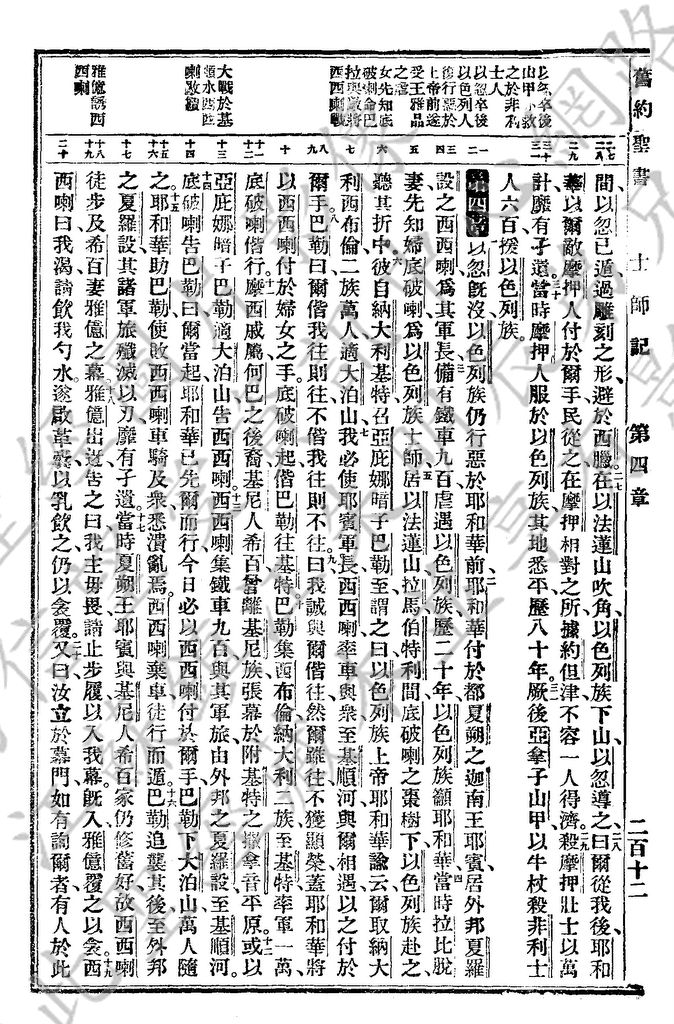 舊約聖書 士師記 第四章 二百十二
以忽卒後
山甲亦救
之於非利
士人
以忽卒後
以色列人
後行惡於
上帝前遂
受王雅品
之虐
女先知底
破喇命巴
拉與厥將
西西喇戰
大戰於基
順水西西
喇敗績
雅億誘西
西喇
間以忽已遁過雕刻之形避於西臘在以法蓮山吹角以色列族下山以忽導之曰爾從我後耶和
華以爾敵摩押人付於爾手民從之在摩押相對之所據約但津不容一人得濟殺摩押壯士以萬
計靡有孑遺當時摩押人服於以色列族其地悉平歷八十年厥後亞拿子山甲以牛杖殺非利士
人六百援以色列族
第四章以忽旣沒以色列族仍行惡於耶和華前耶和華付於都夏朔之迦南王耶賓居外邦夏羅
設之西西喇爲其軍長備有鐵車九百虐遇以色列族歷二十年以色列族籲耶和華當時拉比脫
妻先知婦底破喇爲以色列族士師居以法蓮山拉馬伯特利間底破喇之棗樹下以色列族赴之
聽其折中彼自納大利基特召亞庇娜暗子巴勒至謂之曰以色列族上帝耶和華諭云爾取納大
利西布倫二族萬人適大泊山我必使耶賓軍長西西喇率車與衆至基順河與爾相遇以之付於
爾手巴勒曰爾偕我往則往不偕我往則不往曰我誠與爾偕往然爾雖往不獲顯榮蓋耶和華將
以西西喇付於婦女之手底破喇起偕巴勒往基特巴勒集西布倫納大利二族至基特率軍一萬
底破喇偕行摩西戚屬何巴之後裔基尼人希百嘗離基尼族張幕於附基特之撒拿音平原或以
亞庇娜暗子巴勒適大泊山告西西喇西西喇集鐵車九百與其軍旅由外邦之夏羅設至基順河
底破喇告巴勒曰爾當起耶和華已先爾而行今日必以西西喇付於爾手巴勒下大泊山萬人隨
之耶和華助巴勒使敗西西喇車騎及衆悉潰亂焉西西喇棄車徒行而遁巴勒追襲其後至外邦
之夏羅設其諸軍旅殲滅以刃靡有孑遺當時夏朔王耶賓與基尼人希百家仍修舊好故西西喇
徒步及希百妻雅億之幕雅億出迓告之曰我主毋畏請止步履以入我幕旣入雅億覆之以衾西
西喇曰我渴請飮我勺水遂啟革囊以乳飮之仍以衾覆又曰汝立於幕門如有詢爾者有人於此